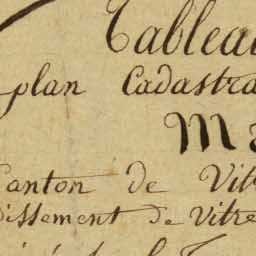 Tablea
plan Cadastra
Ma
Canton de Vit
dissement de Vitre